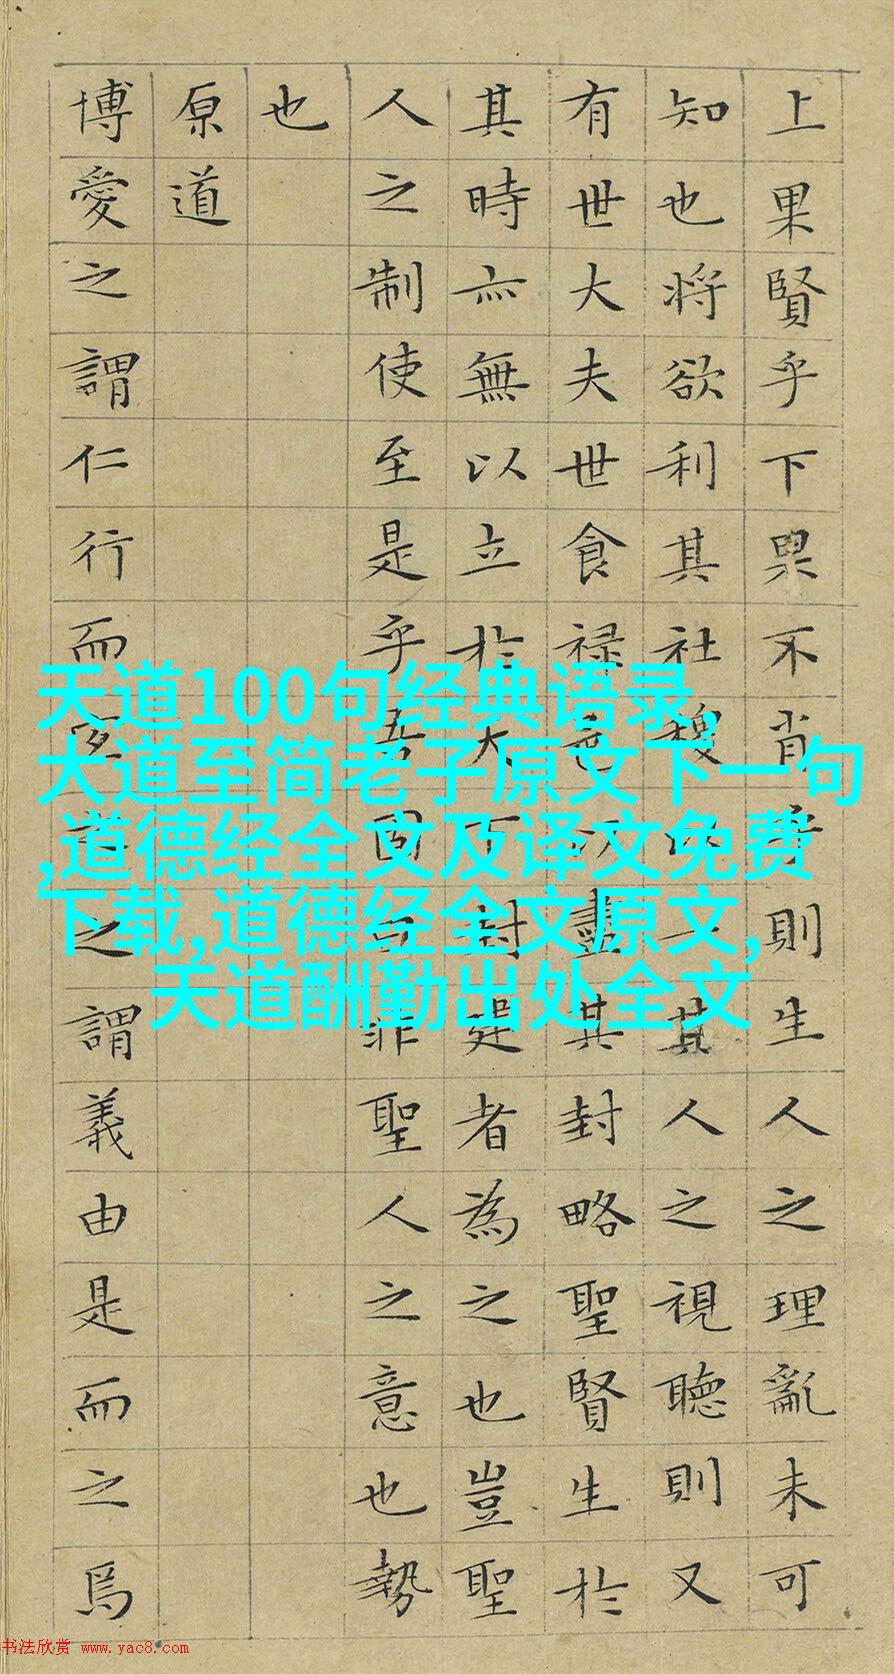 上果賢乎下果不肖乎則生人之理亂未可
知也将欲利其社稷以一其人之視聴則又
有世大夫世食禄邑以盡其封略聖賢生於
其時亦無以立於天下封建者為之也豈聖
人之制使至是乎吾固曰非聖人之意也勢
也
原道
博愛之謂仁行而宜之之謂義由是而之焉
天道100句经典语录,
大道至简老子原文下一句
,道德经全文及译文免费
下载,道德经全文原文,
天道酬勤出处全文
书法欣赏 www.yac8.com